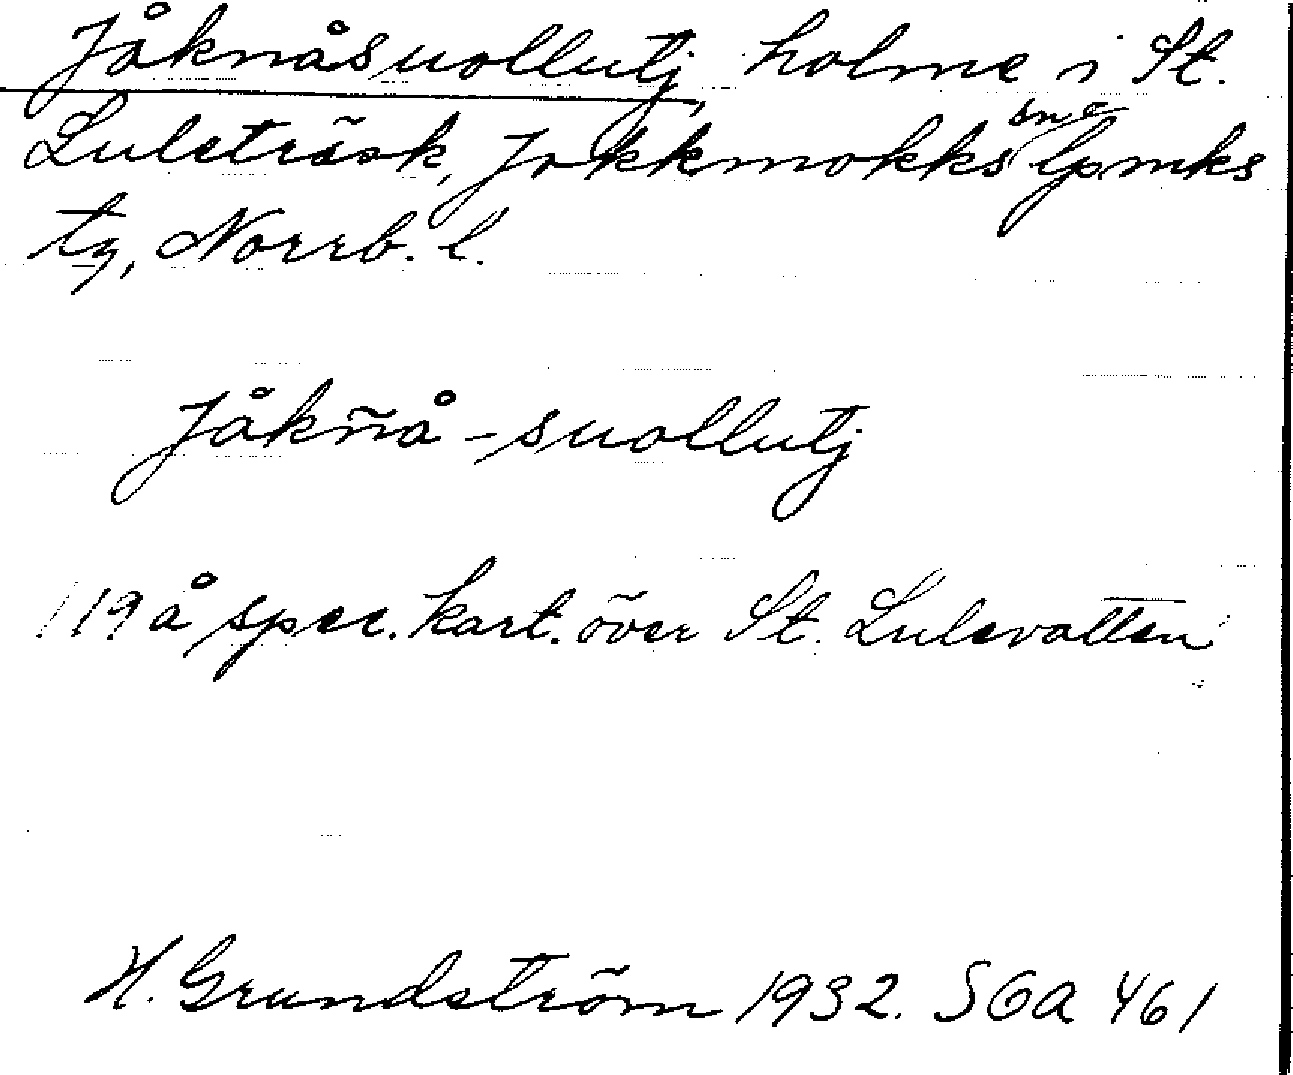 Jåknåsuollutj, holme i St.
Luleträsk, Jokkmokks sne lpmks
tg, Norrb. l.
Jåkñå-suollutj
119 å spec. kart. över St. Lulevatten
H. Grundström 1932. SOA 461